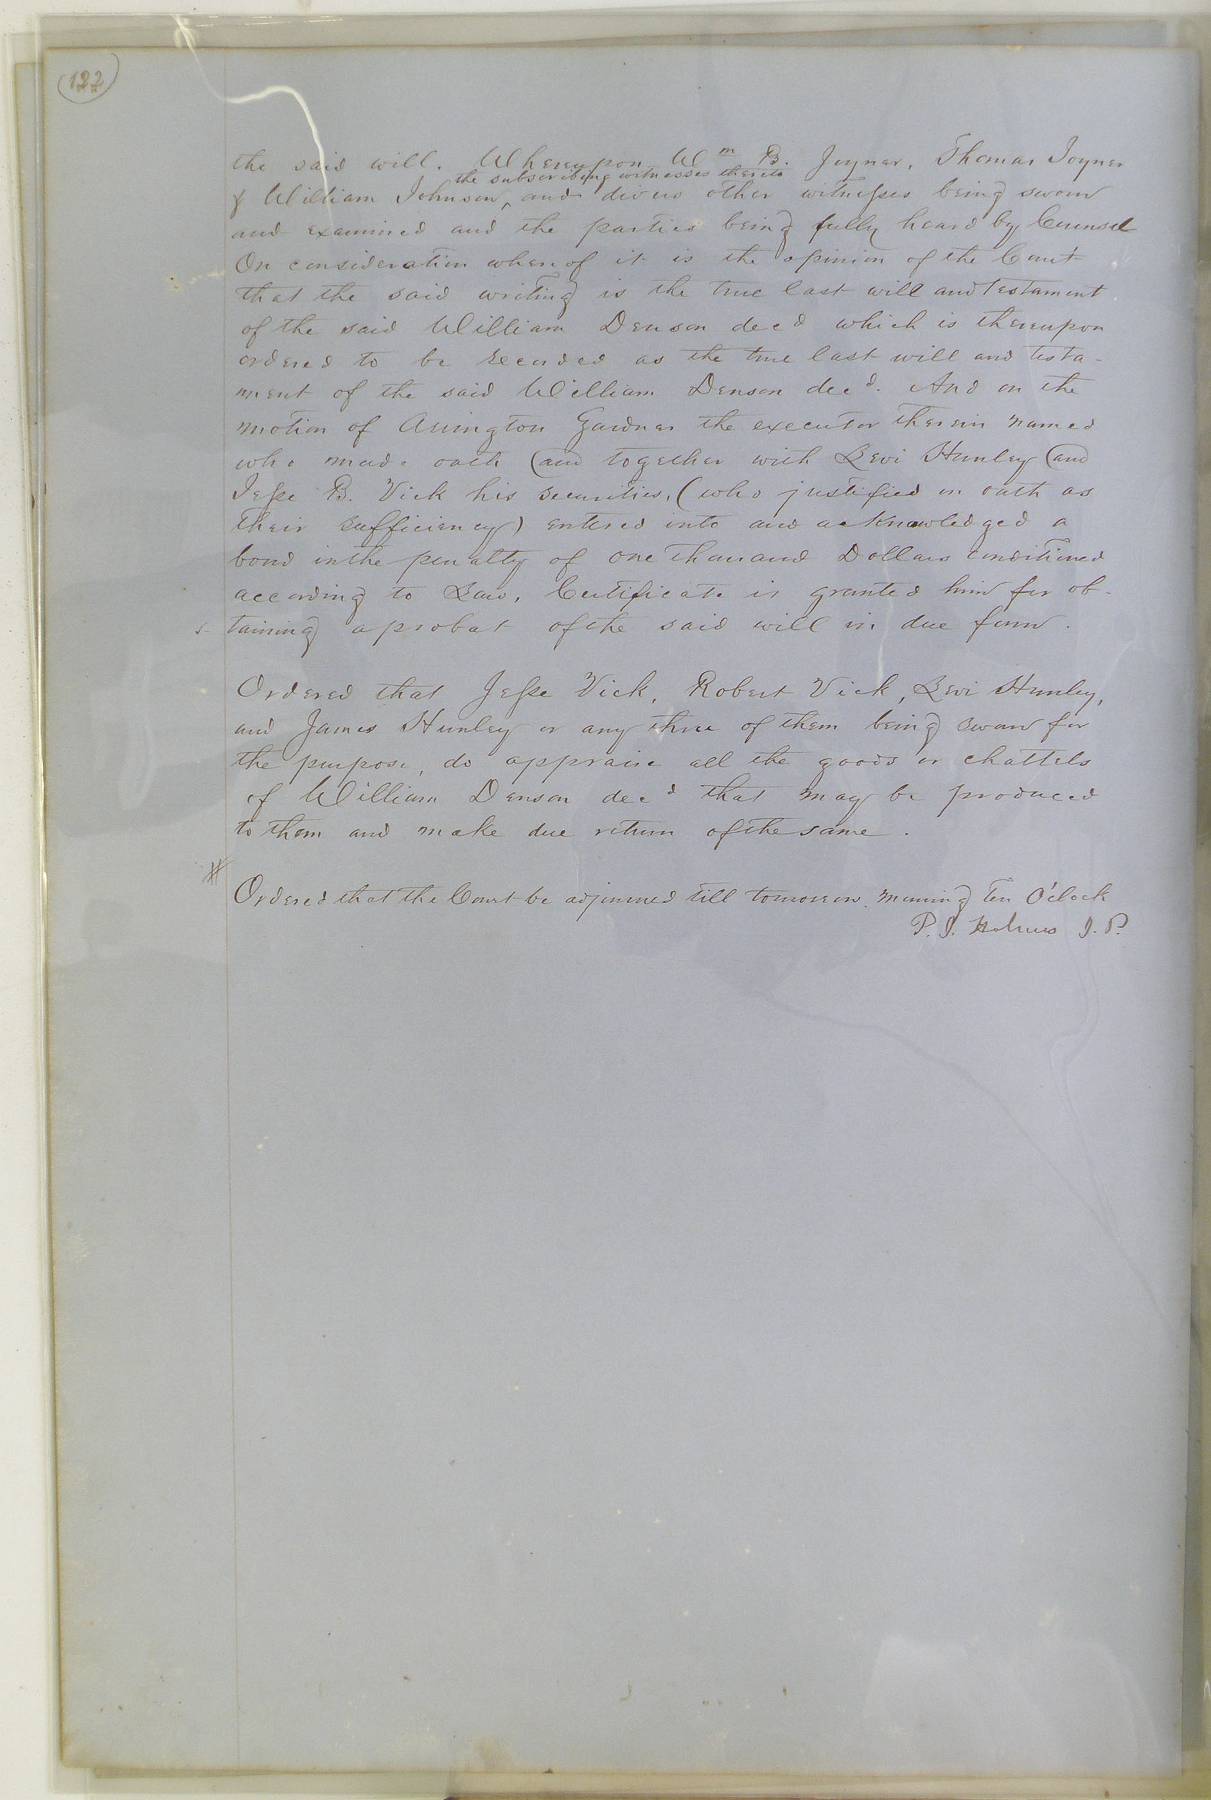 122
the said will. Whereupon Wm B. Joyner, Thomas Joyner
the subscribing witnesses thereto
& William Johnson, and divers other witnesses being sworn
and examined and the parties being fully heard by Counsel
On consideration whereof it is the opinion of the Court
that the said writing is the true last will and testament
of the said William Denson decd which is thereupon
ordered to be recorded as the true last will and testa-
ment of the said William Denson decd. And on the
motion of Arrington Gardner the executor therein named
who made oath (and together with Levi Hunley (and
Jesse B. Vick his securities, (who justified on oath as
their sufficiency) entered into and acknowledged a
bond in the penalty of one thousand Dollars conditioned
according to Law, Certificate is granted him for ob-
taining a probat of the said will in due form.
Ordered that Jesse Vick, Robert Vick, Levi Hunley,
and James Hunley or any three of them being sworn for
the purpose, do appraise all the goods or chattels
of William Denson decd that may be produced
to them and make due return of the same.
#
Ordered that the Court be adjourned till tomorrow morning ten O'clock
P. J. Holmes J. P.